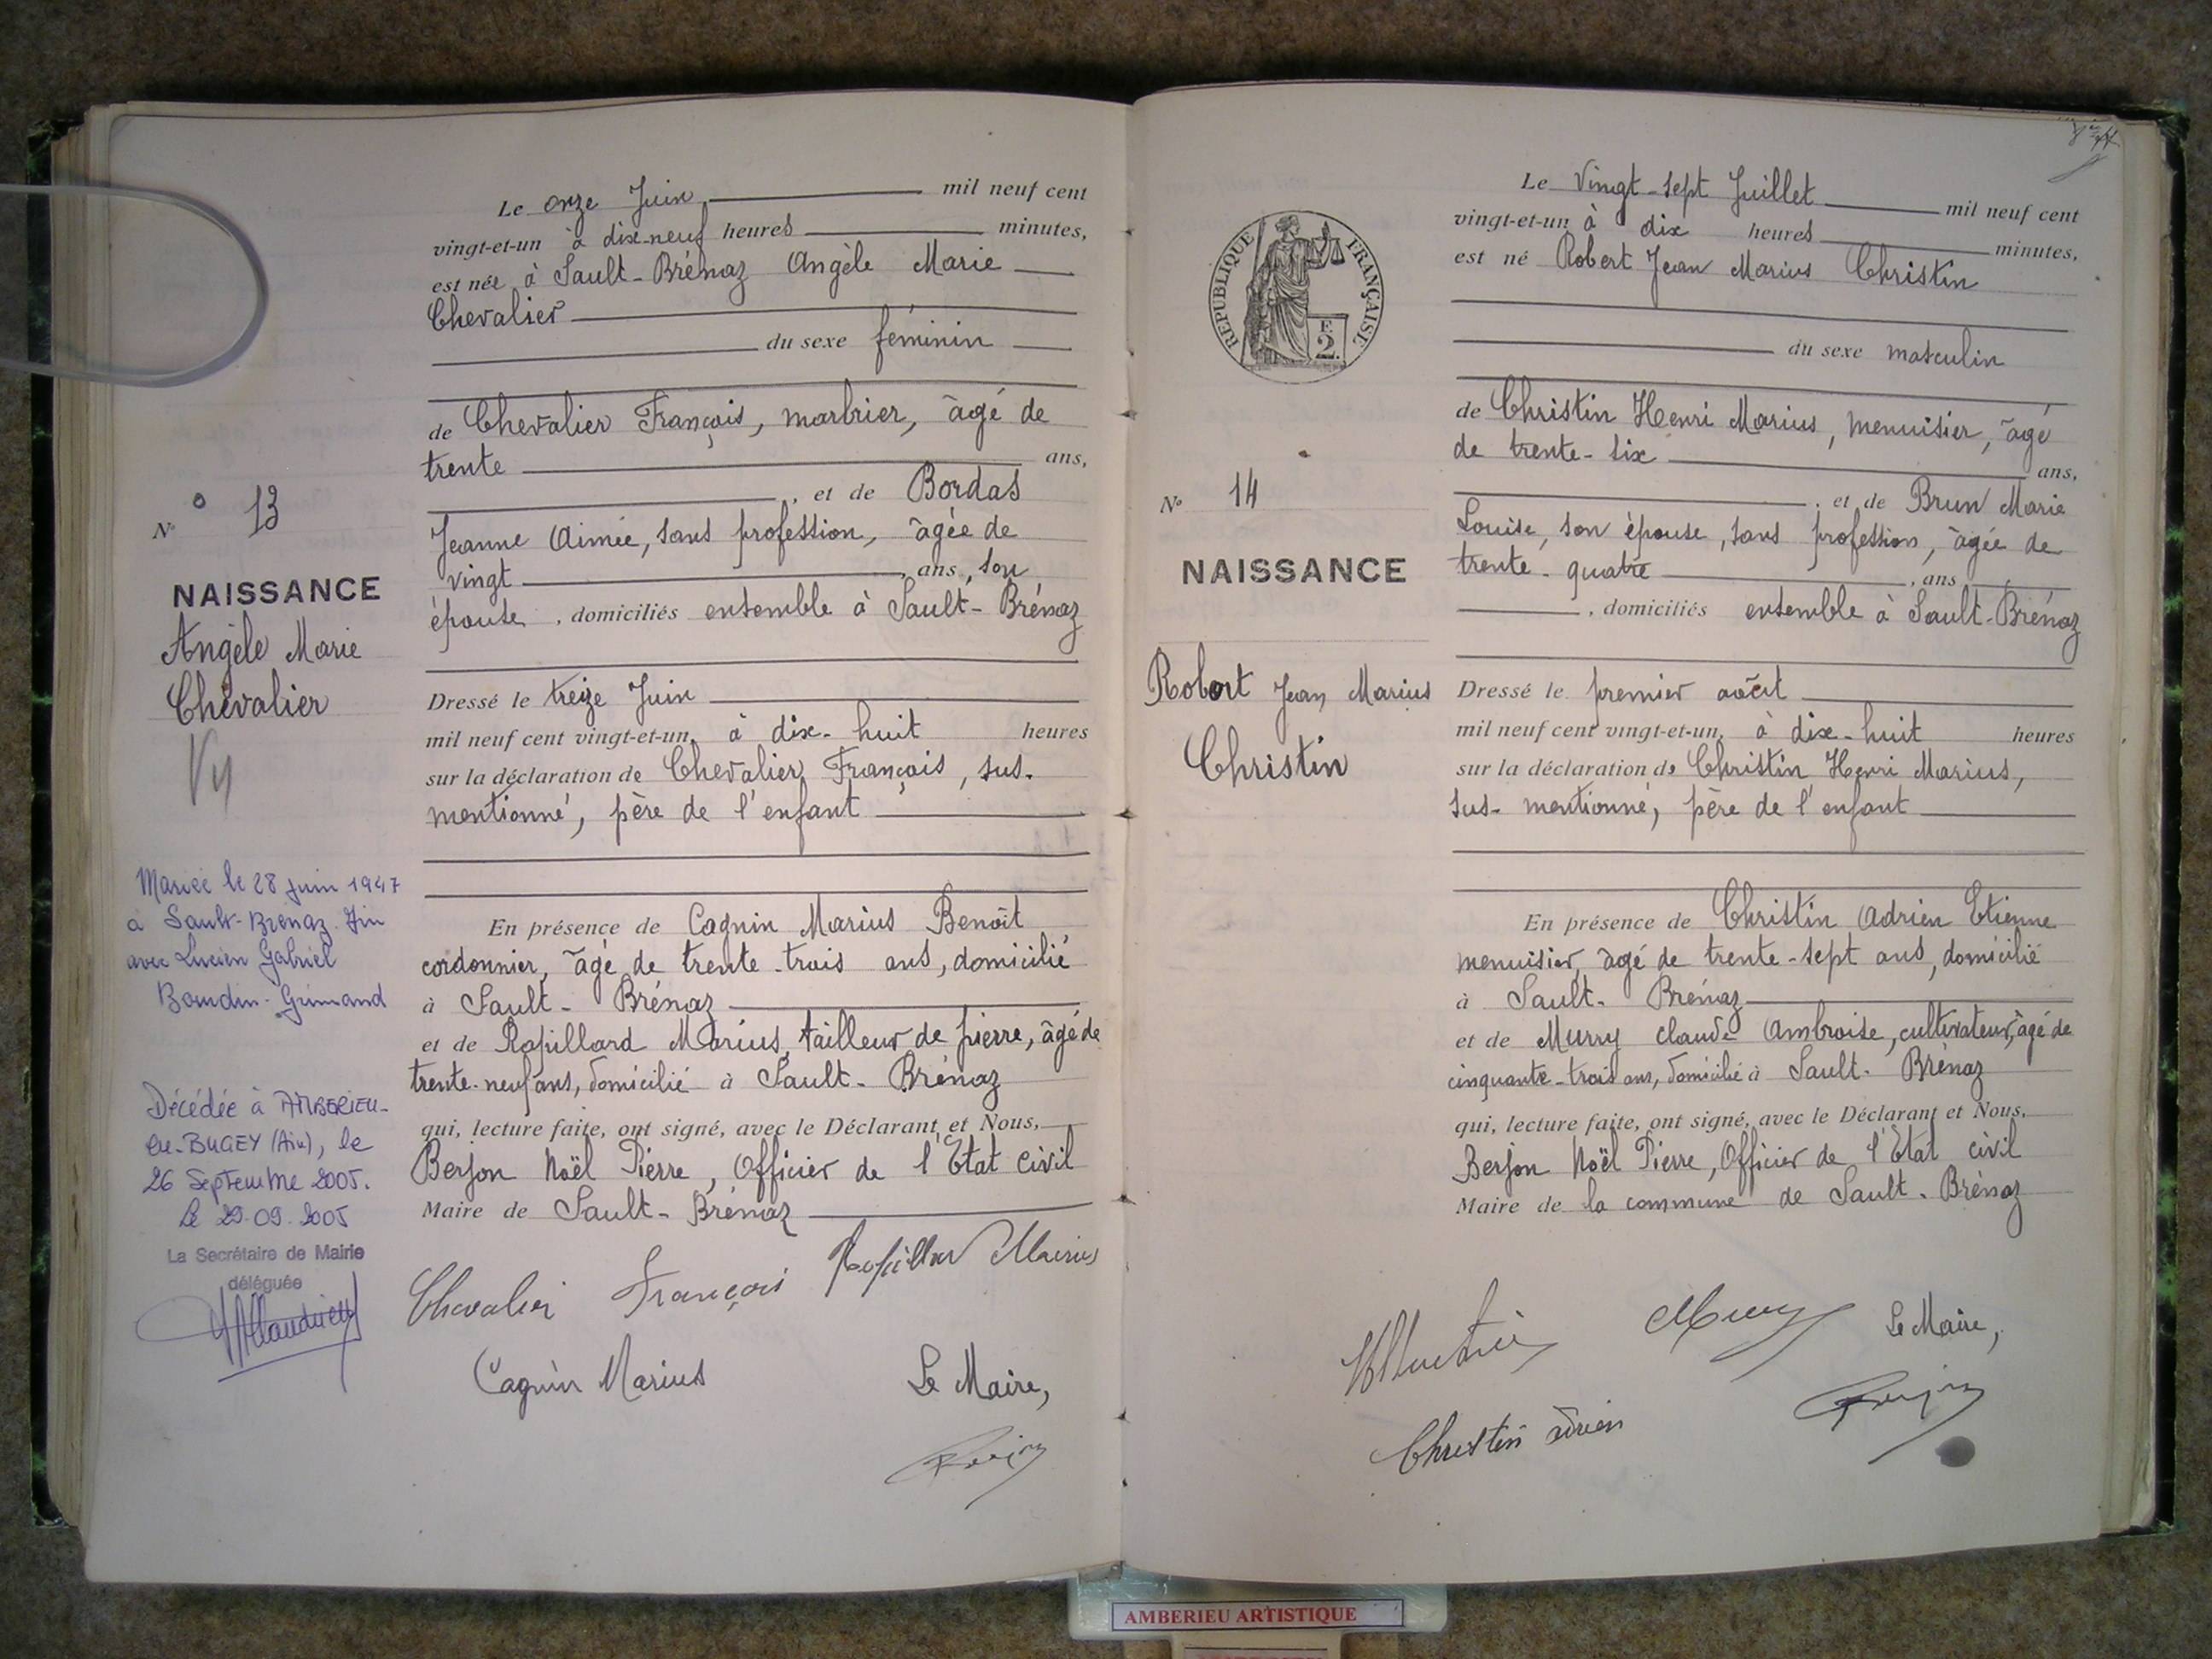 Le onze Juin mil neuf cent
vingt-et-un à dix-neuf heures minutes,
est née à Sault-Brénaz Angèle Marie
Chevalier
du sexe féminin
de Chevalier François, marbrier, âgé de
trente ans,
, et de Bordas
Jeanne Aimée, sans profession, âgée de
vingt , ans, son
épouse , domiciliés ensemble à Sault-Brénaz
N° 13
NAISSANCE
Angèle Marie
Chevalier
Dressé le treize Juin
mil neuf cent vingt-et-un, à dix-huit heures
sur la déclaration de Chevalier François, sus-
mentionné, père de l'enfant
Mariée le 28 juin 1947
à Sault-Brénaz Ain
avec Lucien Gabriel
Boudin-Grimand
En présence de Cagnin Marius Benoît
cordonnier, âgé de trente-trois ans, domicilié
à Sault-Brénaz
et de Rapillard Marius, tailleur de pierre, âgé de
trente-neuf ans, domicilié à Sault-Brénaz
qui, lecture faite, ont signé, avec le Déclarant et Nous,
Berjon Noël Pierre, Officier de l'Etat civil
Maire de Sault-Brénaz
Décédée à AMBERIEU-
en-BUGEY (Ain), le
26 Septembre 2005.
Le 29.09.2005
La Secrétaire de Mairie
déléguée
Chevalier François
Marius
Cagnin Marius
Le Maire,
REPUBLIQUE FRANÇAISE
F.
2.
Le Vingt-sept Juillet mil neuf cent
vingt-et-un à dix heures minutes,
est né Robert Jean Marius Christin
du sexe masculin
de Christin Henri Marius, menuisier, âgé
de trente-six ans,
, et de Brun Marie
Louise, son épouse, sans profession, âgée de
trente-quatre , ans
, domiciliés ensemble à Sault-Brénaz
N° 14
NAISSANCE
Robert Jean Marius
Christin
Dressé le premier août
mil neuf cent vingt-et-un, à dix-huit heures
sur la déclaration de Christin Henri Marius,
sus-mentionné, père de l'enfant
En présence de Christin Adrien Etienne
menuisier, âgé de trente-sept ans, domicilié
à Sault-Brénaz
et de Murry Claude Ambroise, cultivateur, âgé de
cinquante-trois ans, domicilié à Sault-Brénaz
qui, lecture faite, ont signé, avec le Déclarant et Nous,
Berjon Noël Pierre, Officier de l'Etat civil
Maire de la commune de Sault-Brénaz
Le Maire,
Christin Adrien
AMBERIEU ARTISTIQUE